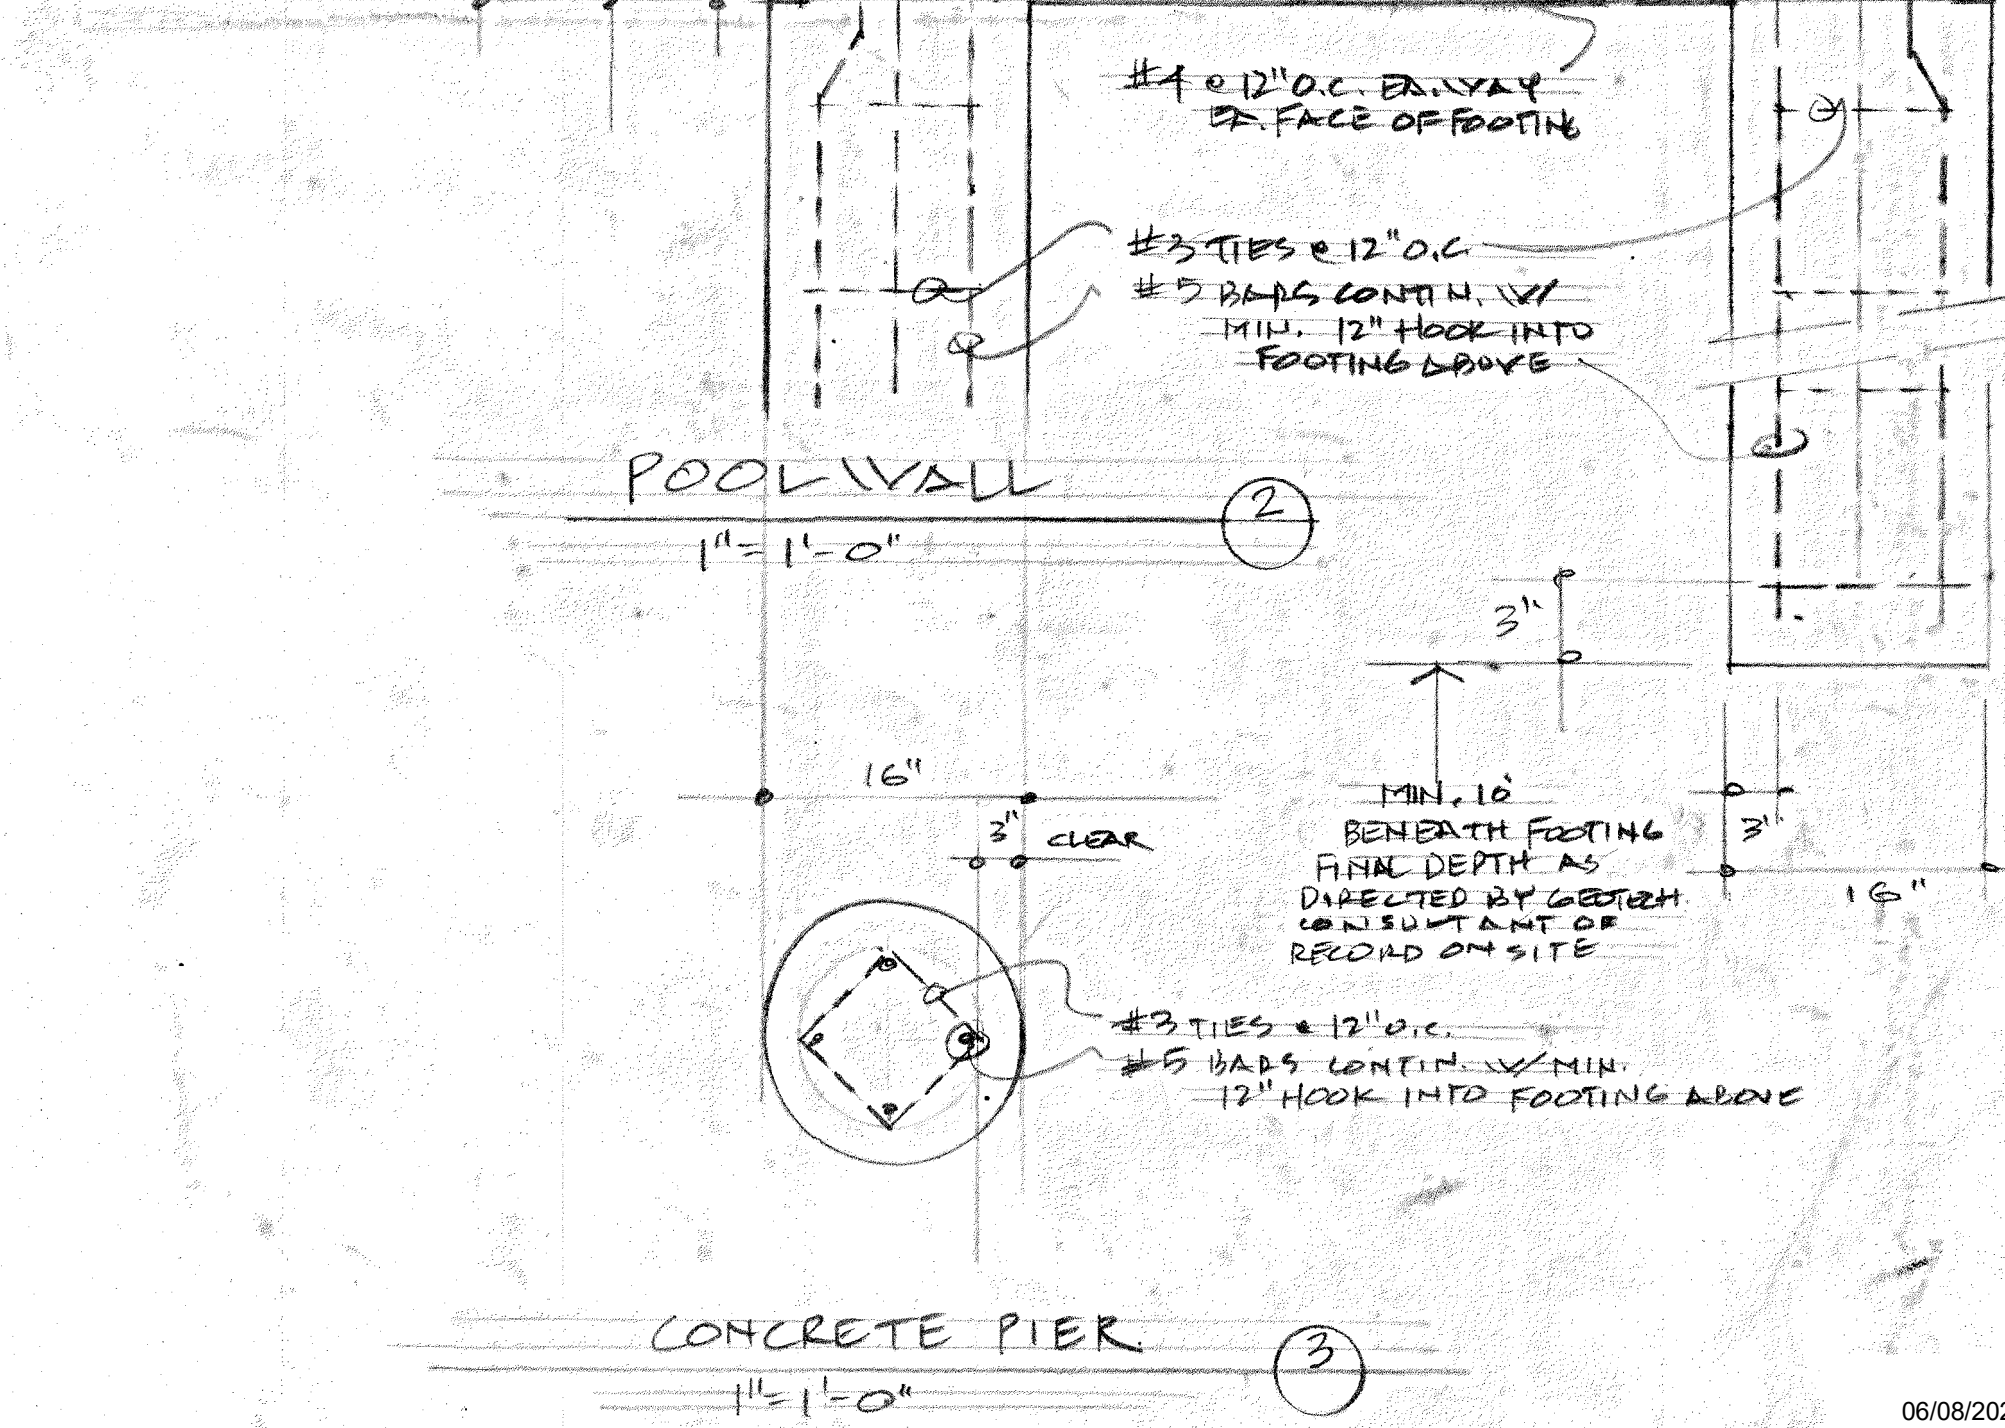 #4 @ 12" O.C. EA. WAY
EA. FACE OF FOOTING
#3 TIES @ 12" O.C
#5 BARS CONTIN. W/
MIN. 12" HOOK INTO
FOOTING ABOVE
POOL WALL
2
1" = 1'-0"
3"
16"
3" CLEAR
MIN. 10'
BENEATH FOOTING
FINAL DEPTH AS
DIRECTED BY GEOTECH
CONSULTANT OF
RECORD ON SITE
3"
16"
#3 TIES @ 12" O.C.
#5 BARS CONTIN. W/ MIN.
12" HOOK INTO FOOTING ABOVE
CONCRETE PIER.
3
1" = 1'-0"
06/08/202